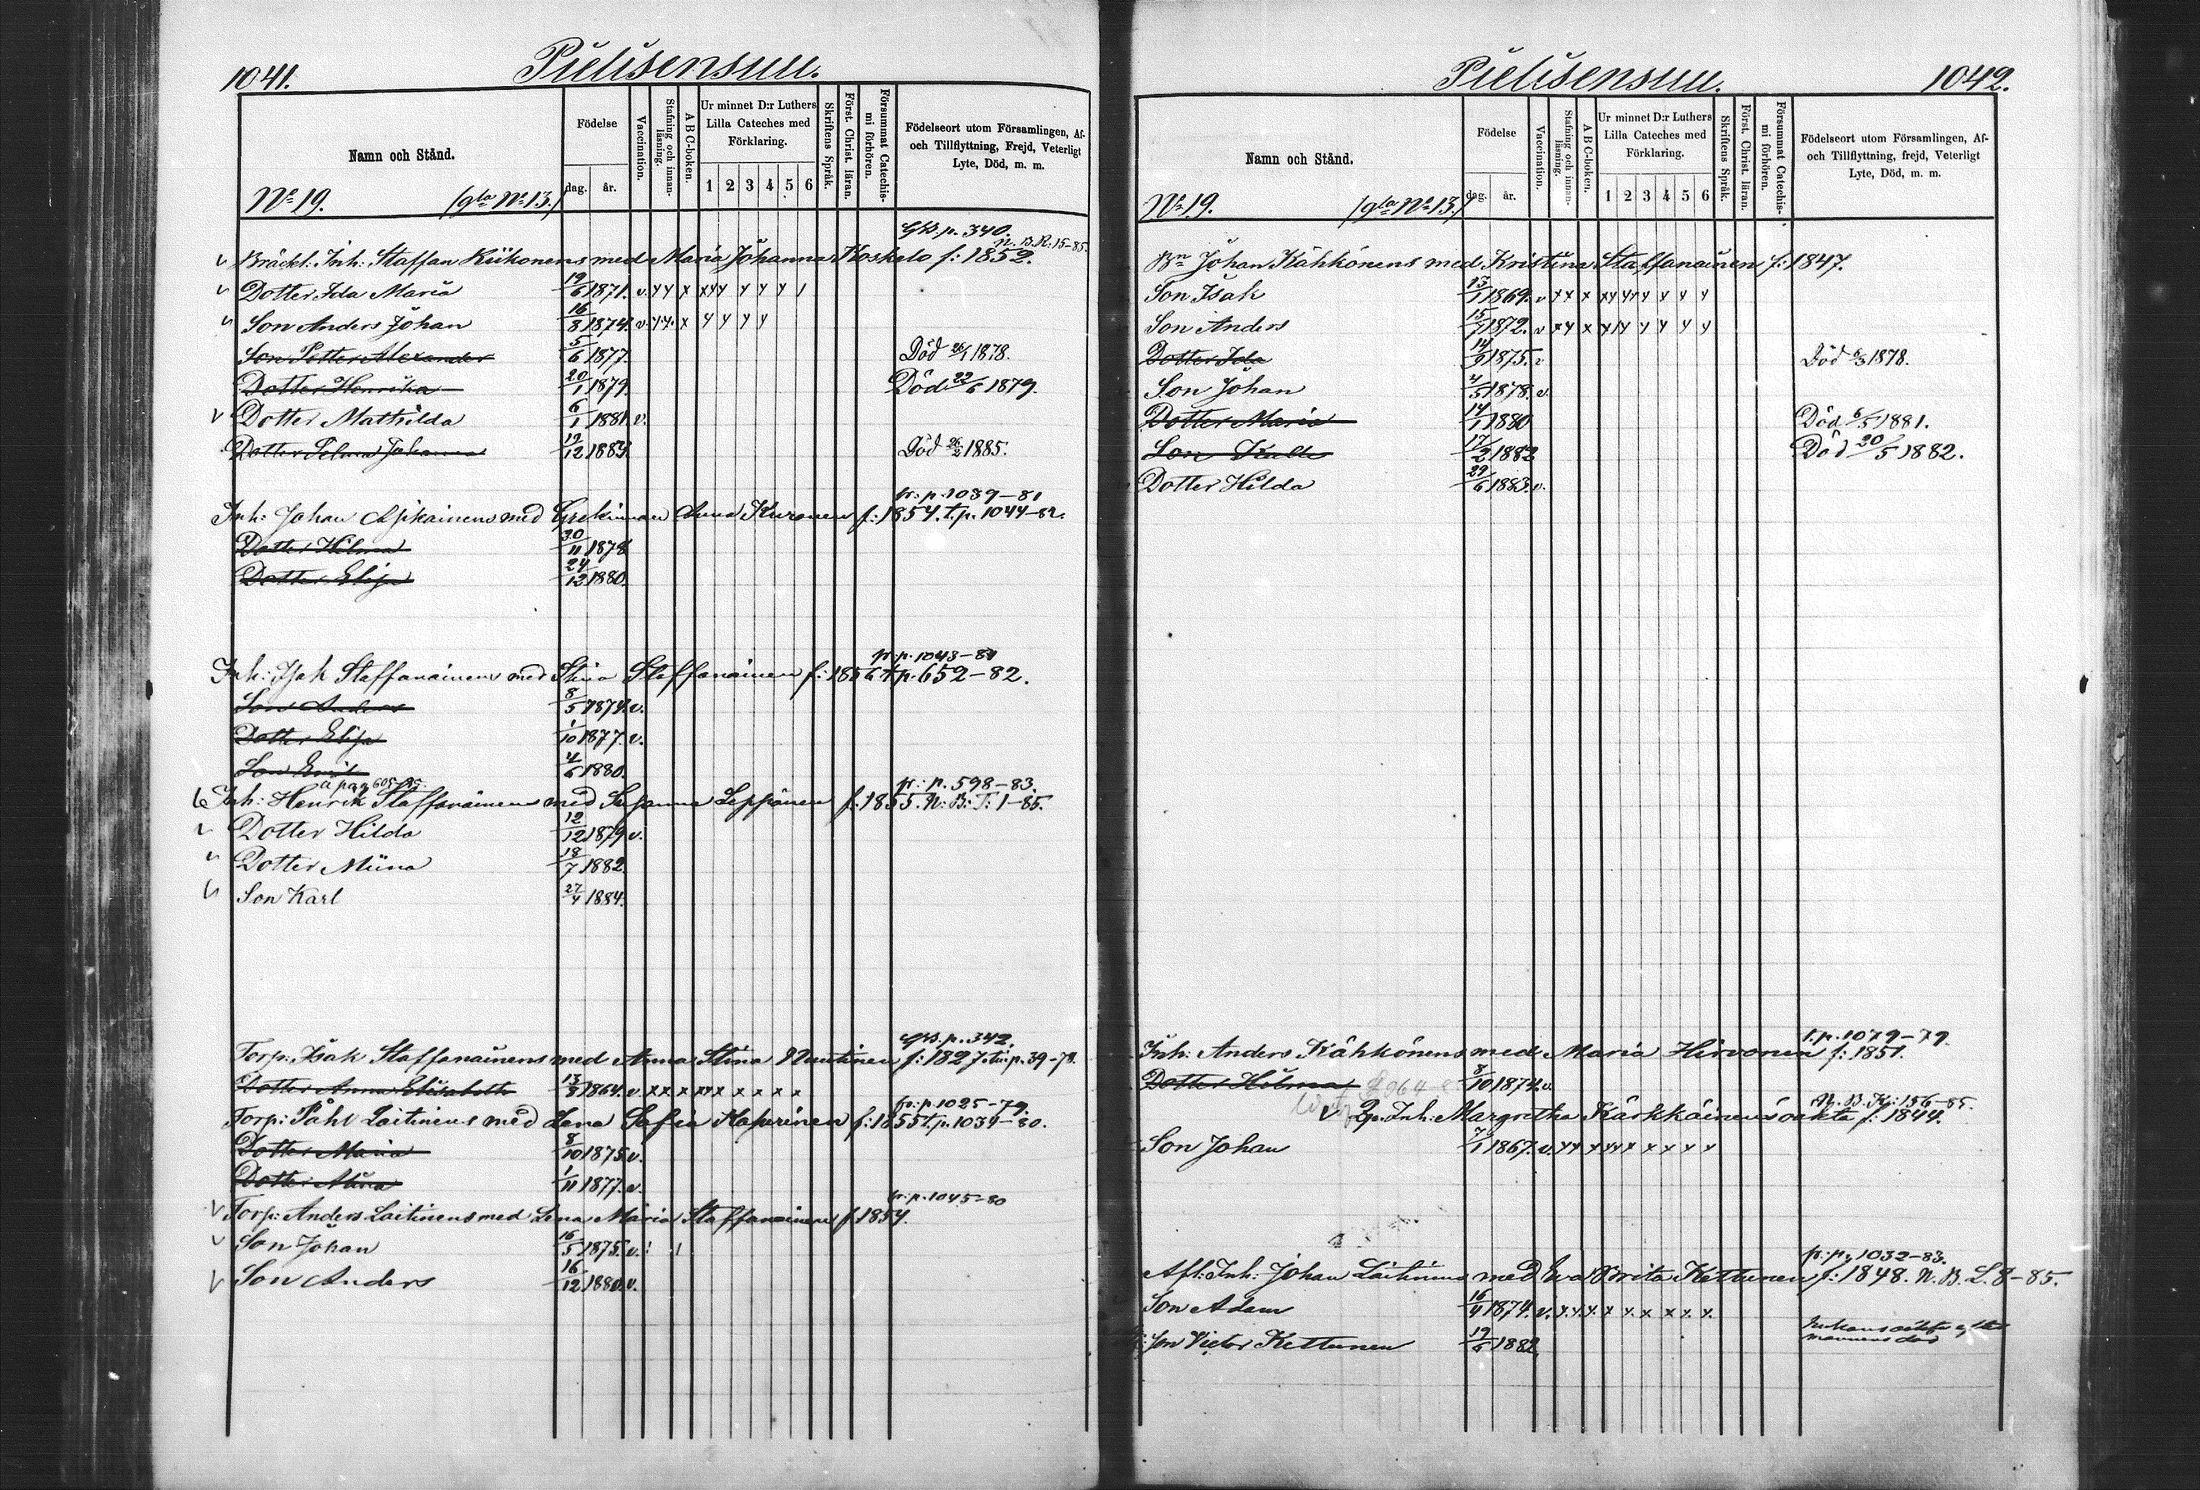 1041.
Pielisensuu.
Namn och Stånd.
Födelse
dag. år.
Vaccination.
Stafning och innanläsning.
A B C-boken.
Ur minnet D:r Luthers Lilla Cateches med Förklaring.
1 2 3 4 5 6
Skriftens Språk.
Först. Christ. läran.
Försummat Catechismi förhören.
Födelseort utom Församlingen, Af- och Tillflyttning, Frejd, Veterligt Lyte, Död, m. m.
No 19. /gla No 13./
p. 340.
N. B. R. 15-85.
Bräckl. Inh: Staffan Kiikonens med Maria Johanna Koskelo f: 1852.
Dotter Ida Maria 19/6 1871. v.
Son Anders Johan 16/8 1874. v.
Son Petter Alexander 5/6 1877. Död 26/1 1878.
Dotter Henrika 20/1 1879. Död 22/6 1879.
Dotter Mathilda 6/1 1881. v.
Dotter Selma Johanna 19/12 1883. Död 26/2 1885.
fr: p. 1039-81
Inh: Johan med Anna Kuronen f: 1854. t. p. 1044-82.
Dotter Hilma 30/11 1878
Dotter Elisa 24/12 1880.
fr: p. 1043-81
Inh: Isak Staffanainens med Stina Staffanainen f: 1856 t. p. 652-82.
Son Anders 8/5 1874. v.
Dotter Elisa 1/10 1877. v.
Son 4/6 1880.
fr: p. 598-83.
Inh: Henrik Staffanainens med Susanna Leppänen f. 1855. N. B. T. 1-85.
Dotter Hilda 12/12 1879 v.
Dotter Miina 18/7 1882
Son Karl 27/4 1884.
p. 342.
Torp: Isak Staffanainens med Anna Stina Nuutinen f: 1827. p. 39-78.
Dotter Anna Elisabeth 13/8 1864. v.
fr: p. 1025-79.
Torp: Påhl Laitinens med Lena Sofia f: 1855 t. p. 1039-80.
Dotter Maria 8/10 1875. v.
Dotter Miina 1/11 1877. v.
fr: p. 1045-80
Torp: Anders Laitinens med Lena Maria Staffanainen f. 1854.
Son Johan 16/5 1875. v.
Son Anders 16/12 1880. v.
Pielisensuu.
1042.
Namn och Stånd.
Födelse
dag. år.
Vaccination.
Stafning och innanläsning.
A B C-boken.
Ur minnet D:r Luthers Lilla Cateches med Förklaring.
1 2 3 4 5 6
Skriftens Språk.
Först. Christ. läran.
Försummat Catechismi förhören.
Födelseort utom Församlingen, Af- och Tillflyttning, frejd, Veterligt Lyte, Död, m. m.
No 19. /gla No 13./
Bn Johan Kähkönens med Kristina Staffanainen f: 1847.
Son Isak 13/1 1869. v
Son Anders 15/7 1872. v
Dotter Ida 14/9 1875. v Död 6/3 1878.
Son Johan 4/5 1878. v.
Dotter Maria 14/1 1880 Död 6/5 1881.
Son Kalle 17/2 1882 Död 20/5 1882.
Dotter Hilda 29/6 1883. v.
t. p. 1079-79.
Inh: Anders Kähkönens med Maria Hirvonen f: 1851.
Dotter Hilma 8/10 1874. v.
N. B. K: 156-85.
Inh: Margretha Kärkkäinens oäkta f. 1844.
Son Johan 7/1 1867. v.
fr: p. 1032-83.
Afl: Inh: Johan Laitinens med Eva Brita Kettunen f: 1848. N. B. L. 8-85.
Son Adam 16/4 1874. v.
Son Victor Kettunen 19/6 1882.
mannens död